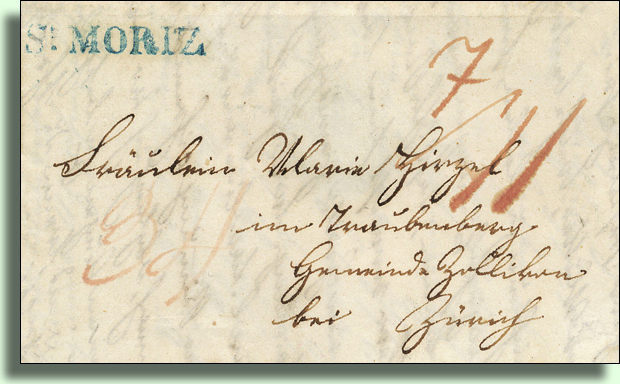 St MORIZ
7
Fräulein Marie Hirzel
im Traubenberg
Gemeinde Zollikon
bei Zürich